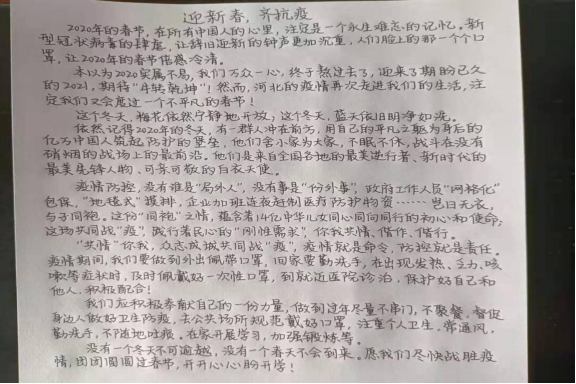 迎新春，齐抗疫
2020年的春节，在所有中国人的心里，注定是一个永生难忘的记忆。新
型冠状病毒的肆虐，让辞旧迎新的钟声更加沉重，人们脸上的那一个个口
罩，让2020年的春节倍感冷清。
本以为2020实属不易，我们万众一心，终于熬过去了，迎来了期盼已久
的2021，期待"牛转乾坤"！然而，河北的疫情再次走进我们的生活，注
定我们又会度过一个不平凡的春节！
这个冬天，梅花依然宁静地开放；这个冬天，蓝天依旧明净如洗。
依然记得2020年的冬天，有一群人冲在前方，用自己的平凡之躯为身后的
亿万中国人筑起防护的堡垒，他们舍小家为大家，不眠不休，战斗在没有
硝烟的战场上的最前沿。他们是来自全国各地的最美逆行者、新时代的
最美先锋人物、可亲可敬的白衣天使。
疫情防控，没有谁是"局外人"，没有事是"份外事"，政府工作人员"网格化"
包保，"地毯式"摸排，企业加班连夜赶制医疗防护物资……岂曰无衣，
与子同袍。这份"同袍"之情，蕴含着14亿中华儿女同心同向同行的初心和使命；
这场共同战"疫"，践行着民心的"刚性需求"，你我共情、偕作、偕行。
"共情"你我，众志成城共同战"疫"，疫情就是命令，防控就是责任。
疫情期间，我们要做到外出佩带口罩，回家要勤洗手，在出现发热、乏力、咳
嗽等症状时，及时佩戴好一次性口罩，到就近医院诊治，保护好自己和
他人，积极配合！
我们应积极奉献自己的一份力量，做到过年尽量不串门，不聚餐，督促
身边人做好卫生防疫，去公共场所规范戴好口罩，注重个人卫生，常通风，
勤洗手，不随地吐痰。在家开展学习，加强锻炼等。
没有一个冬天不可逾越，没有一个春天不会到来。愿我们尽快战胜疫
情，团团圆圆过春节，开开心心盼开学！